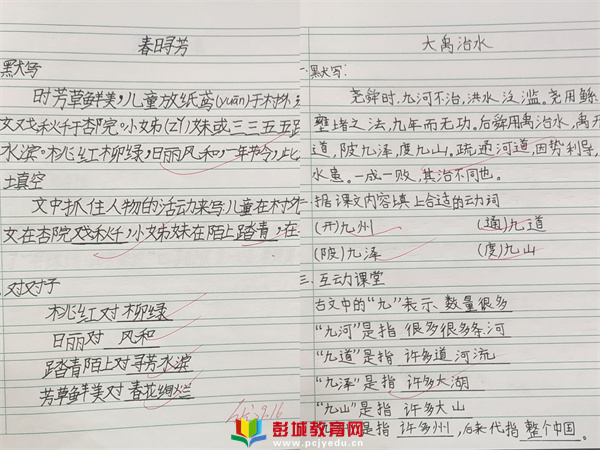 春日寻芳
默写
时芳草鲜美，儿童放纸鸢(yuān)于村外，
女戏秋千于杏院。小姊(zǐ)妹或三三五五
水滨。桃红柳绿，日丽风和，一年节令，此
填空
文中抓住人物的活动来写儿童在村外
女在杏院戏秋千，小姊妹在陌上踏青，在
对对子
桃红对柳绿
日丽对 风和
踏青陌上对寻芳水滨
芳草鲜美对 春花烂
9.16
大禹治水
一、默写：
尧舜时，九河不治，洪水泛滥。尧用鲧
壅堵之法，九年而无功。后舜用禹治水，禹开
道，陂九泽，度九山。疏通河道，因势利导，
水患。一成一败，其治不同也。
据课文内容填上合适的动词
(开)九州 (通)九道
(陂)九泽 (度)九山
三、互动课堂
古文中的“九”表示 数量很多
“九河”是指 很多很多条河
“九道”是指 许多道河流
“九泽”是指 许多大湖
“九山”是指 许多大山
是指 许多州，后来代指 整个中国。
彭城教育网
www.pcjyedu.cn